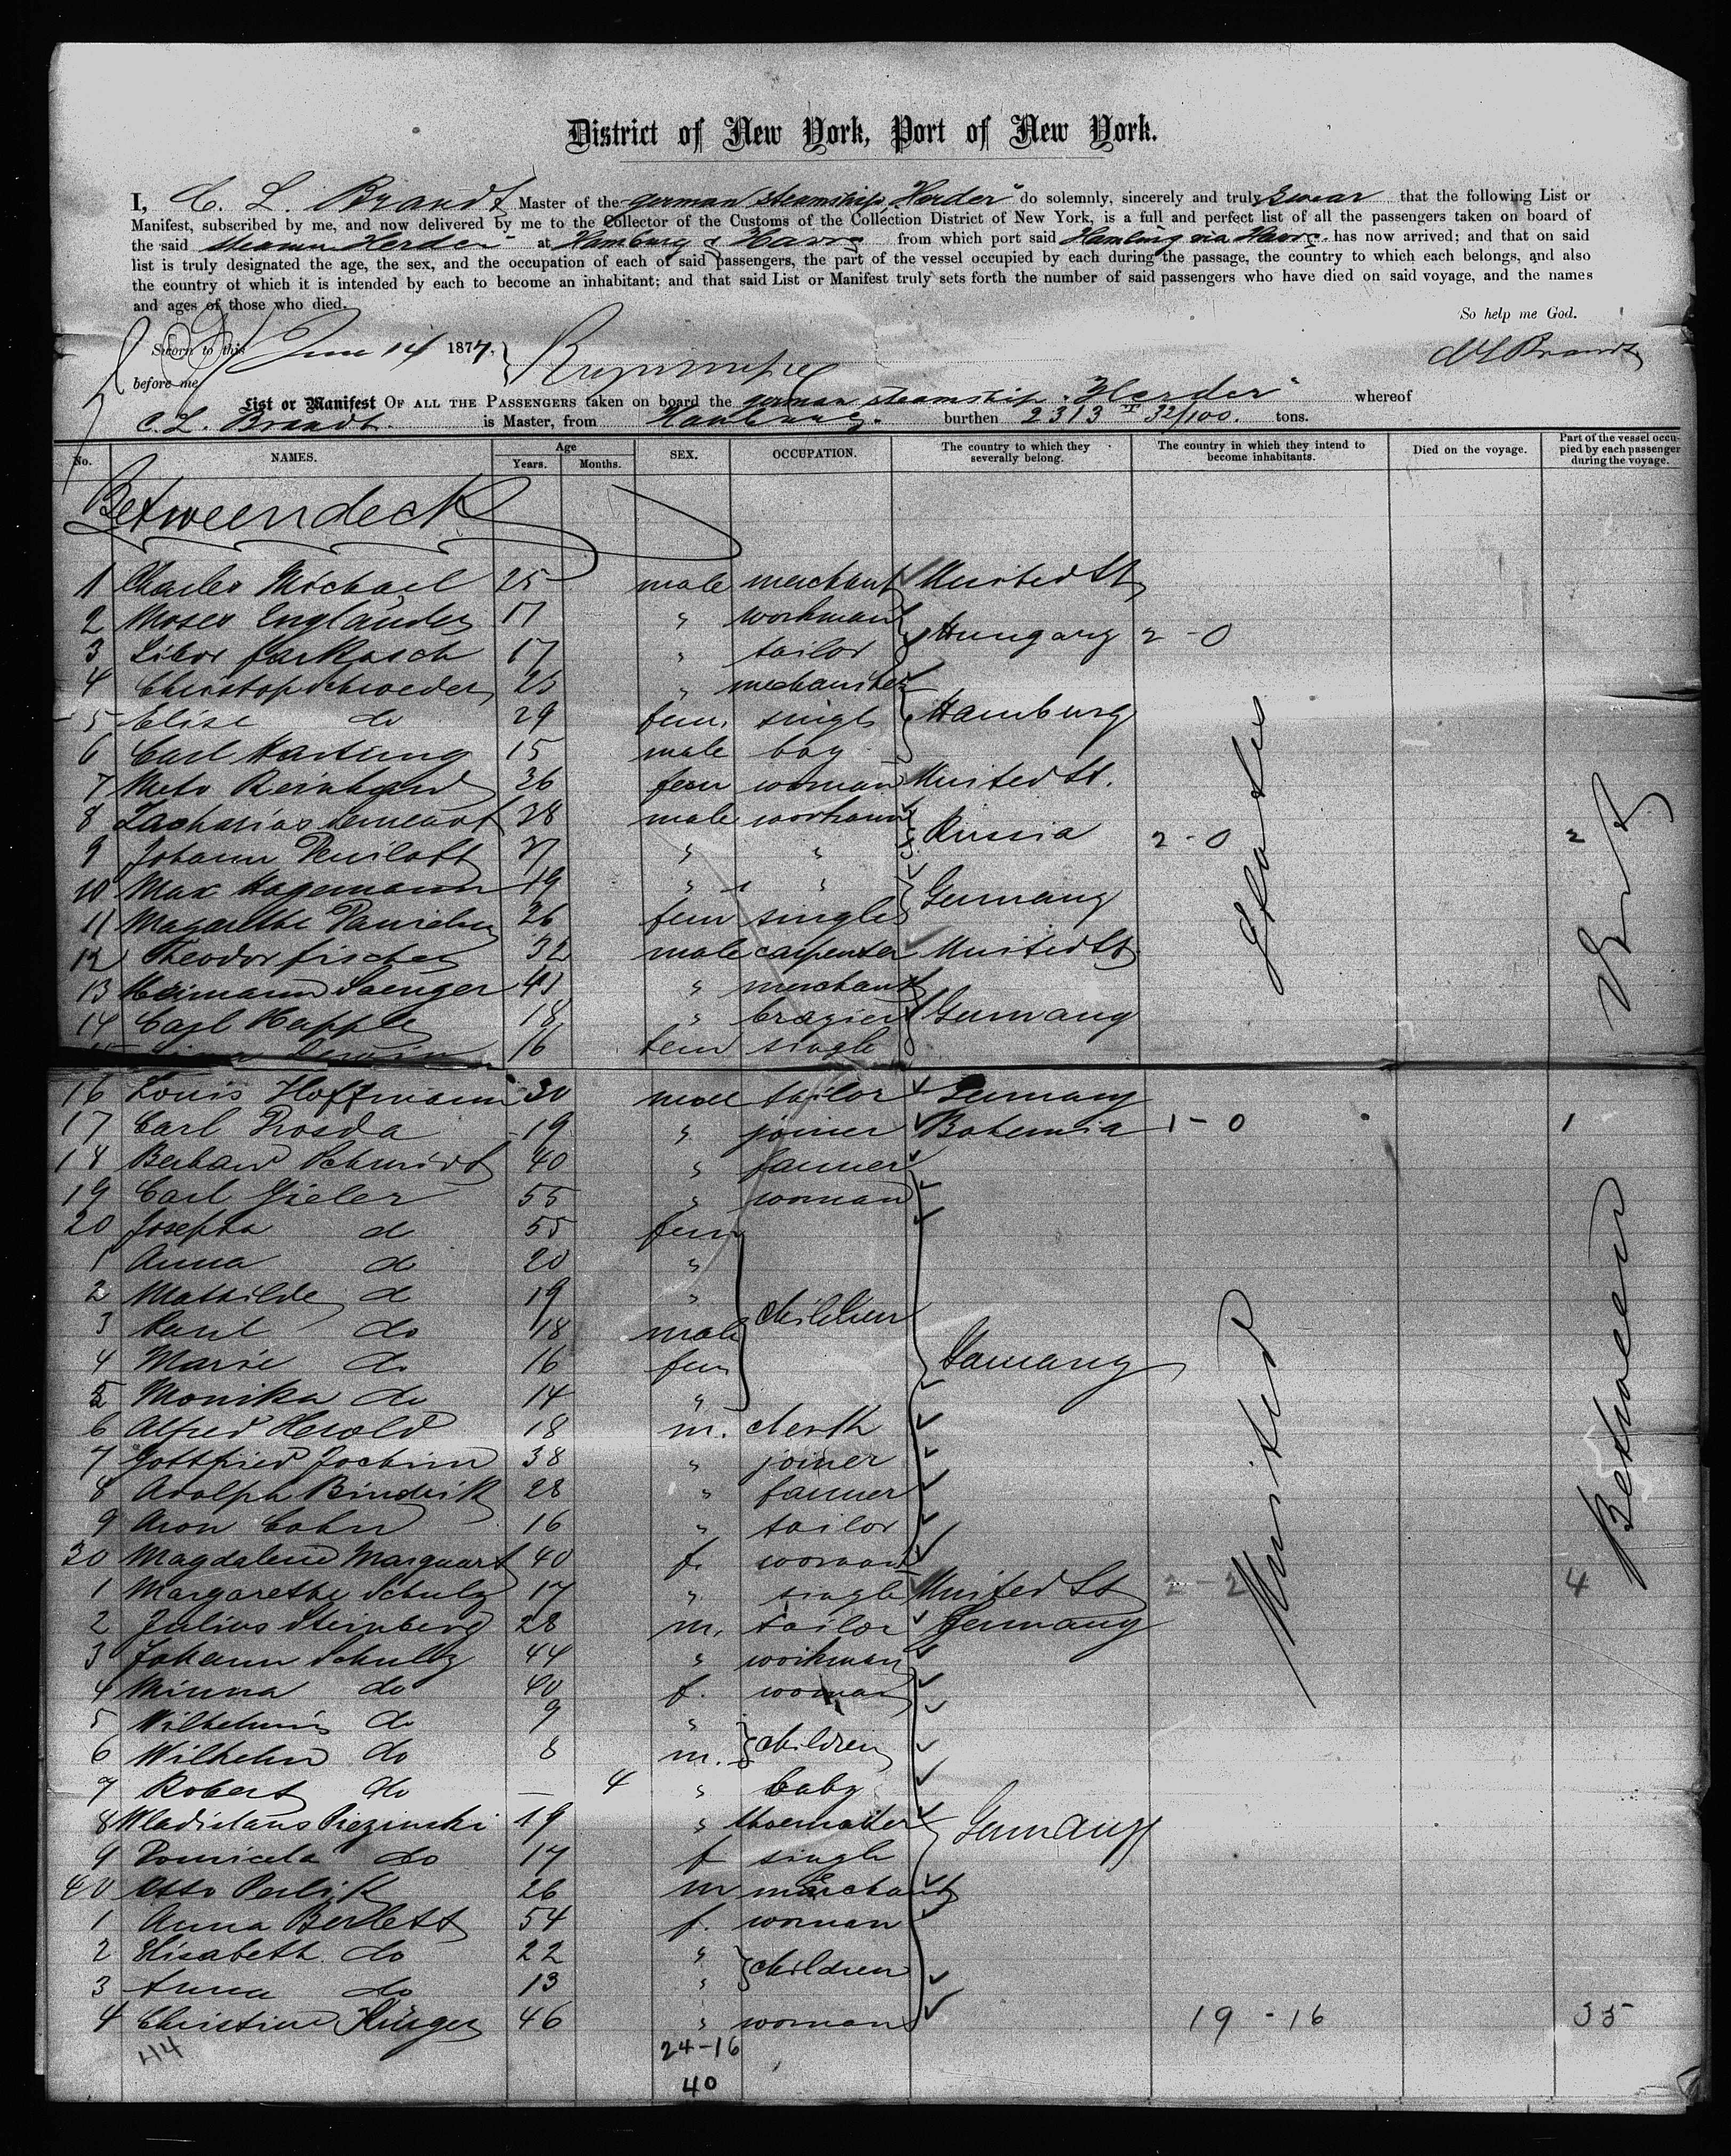 District of New York, Port of New York.
I, C. L. Brandt Master of the german steamship "Herder" do solemnly, sincerely and truly swear that the following List or
Manifest, subscribed by me, and now delivered by me to the Collector of the Customs of the Collection District of New York, is a full and perfect list of all the passengers taken on board of
the said steamer Herder at Hamburg & Havre from which port said Hamburg via Havre has now arrived; and that on said
list is truly designated the age, the sex, and the occupation of each of said passengers, the part of the vessel occupied by each during the passage, the country to which each belongs, and also
the country of which it is intended by each to become an inhabitant; and that said List or Manifest truly sets forth the number of said passengers who have died on said voyage, and the names
and ages of those who died.
So help me God.
Sworn to this June 14 1877.
C L Brandt
before me
List or Manifest OF ALL THE PASSENGERS taken on board the german steamship "Herder" whereof
C. L. Brandt. is Master, from Hamburg. burthen 2313 32/100. tons.
No. NAMES. Age Years. Months. SEX. OCCUPATION. The country to which they severally belong. The country in which they intend to become inhabitants. Died on the voyage. Part of the vessel occupied by each passenger during the voyage.
Betweendeck
1 Charles Michael 25 male merchant United St
2 Moses Engländer 17 " workman
3 Libor Farkasch 17 " tailor Hungary 2 - 0
4 Christoph Schroeder 25 "
5 Elise do 29 fem. single Hamburg
6 Carl Hartung 15 male boy
7 Meta Reinhard 26 fem woman United St.
8 Zacharias 28 male workman Russia 2 - 0 2
9 Johann " "
10 Max Hagemann 19 " " Germany
11 26 fem single
12 Theodor Fischer 32 male carpenter United St
13 Saenger 41 " merchant
14 Carl Happle 18 " brazier Germany
16 fem single
16 Louis Hoffmann 30 male tailor Germany
17 Carl Prosda 19 " joiner Bohemia 1 - 0 1
18 Schmidt 40 " farmer
19 Carl Gieler 55 " woman
20 Josepha d 55 fem
1 Anna do 20 "
2 Mathilde d 19 " children
3 Paul do 18 male
4 Marie do 16 fem Germany
5 Monika do 14 "
6 Alfred Herold 18 m. clerk
7 Gottfried Jochim 38 " joiner
8 Adolph Bindrik 28 " farmer
9 Aron Cohn 16 " tailor
30 Magdalene Marquart 40 f. woman
1 Margarethe Schulz 17 " single United St 2 - 2 4
2 Julius Steinberg 28 m. tailor Germany
3 Johann Schultz 44 " workman
4 Minna do 40 f. woman
5 Wilhelmine do 9 "
6 Wilhelm do 8 m. children
7 Robert do — 4 " baby
8 Wladislaus Piezinski 19 " shoemaker Germany
9 do 17 f single
40 Otto Perlik 26 m merchant
1 Anna Berlett 54 f. woman
2 Elisabeth do 22 "
3 Anna do 13 " children
4 Christine Krüger 46 " woman 19 - 16 35
44 24-16
40
United
States
Between
deck